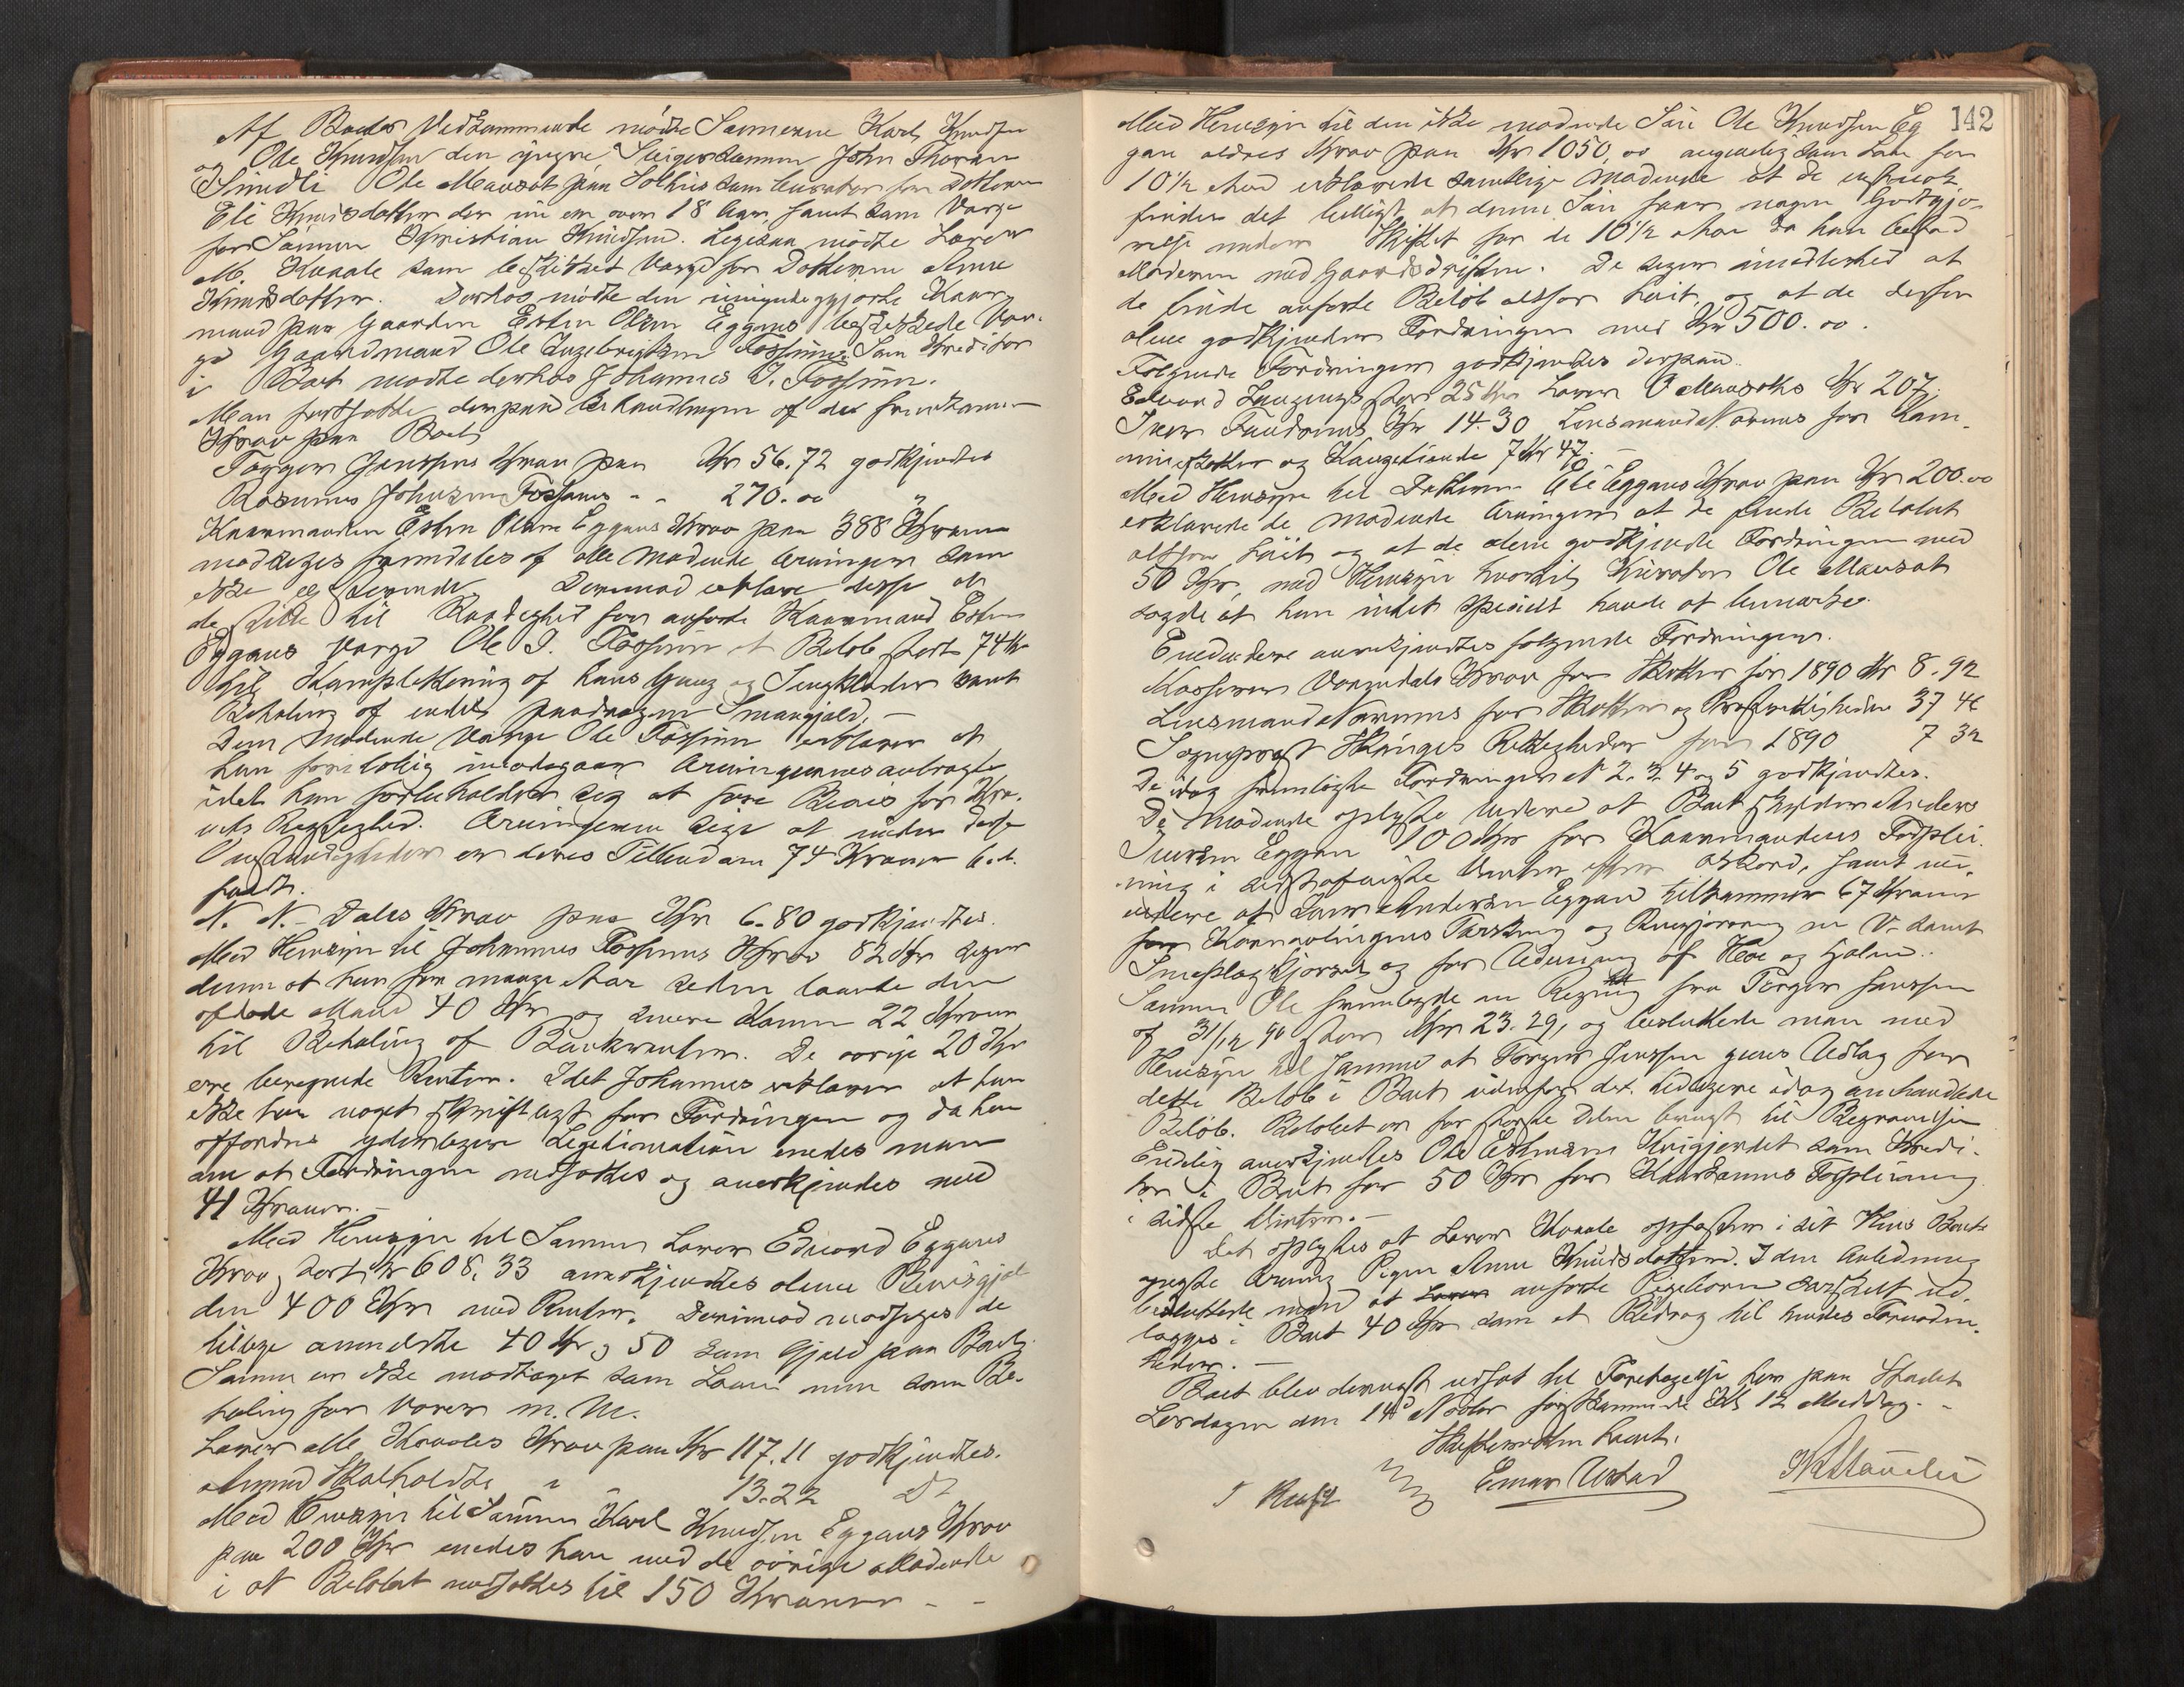 Af Boets Vedkommende mødte Sønnerne Karl Knudsen
og Ole Knudsen den yngre, Svigersønnen John Thoresen
Ole Mausæt paa som Curator for Datteren
Eli Knudsdatter der nu er over 18 Aar, samt som Værge
for Sønnen Kristian Knudsen. Ligesaa mødte Lærer
M. Kvaale som beskikket Værge for Datteren Anne
Knudsdatter. Derhos mødte den umyndiggjorte Kaar-
mand paa Gaarden Esten Olsen Eggans beskikkede Vær-
ge Gaardmand Ole Ingebrigtsen Fossum. Som Kreditor
i Boet mødte derhos Johannes J. Fossum.
Man fortsatte derpaa Behandlingen af de fremkomne
Krav paa Boet
Torger Janssens Krav paa Kr 56.72 godkjendtes
Rasmus Johnsen Fossums - - 270.00 "
Kaarmanden Esten Olsen Eggans Krav paa 388 Kroner
modsiges fremdeles af alle mødende Arvinger som
ikke Derimod erklære disse at
de stille til Raadighed for anførte Kaarmand Esten
Eggans Værge Ole I. Fossum et Beløb stort 74 Kr
til Komplettering af hans Gang og Sengklæder samt
Betaling af endel paadragen Smaagjæld. —
Den mødende Værge Ole Fossum erklærer at
han foreløbig imødegaar Arvingernes antragte
idet han forbeholder sig at føre Bevis for Kra-
vets Rigtighed. Arvingerne siger at under disse
Omstændigheder er deres Tilbud om 74 Kroner bort-
faldt.
N. N. Dales Krav paa Kr 6.80 godkjendtes.
Med Hensyn til Johannes Fossums Krav 82 Kr siger
denne at han for mange Aar siden laante den
afdøde Mand 40 Kr og senere Konen 22 Kroner
til Betaling af Bankrenter. De øvrige 20 Kr
ere beregnede Renter. Idet Johannes erklærer at han
ikke har noget skriftligt for Fordringen og da hen
affordres yderligere Legitimation enedes man
om at Fordringen nedsattes og anerkjendes med
41 Kroner. —
Med Hensyn til Sønnen Lærer Edvard Eggans
Krav, stort Kr 608.33 anerkjendtes alene Bevisgjæl
den 400 Kr med Renter. Derimod modsiges de
tillige anmeldte 40 Kr og 50 som Gjæld paa Boet.
Samme er ikke modtaget som Laan men som Be-
taling for Varer m. M.
Lærer M. Kvaales Krav paa Kr 117.11 godkjendtes.
Amund Skalholdts " 13.22 Do
Med Hensyn til Sønnen Karl Knudsen Eggans Krav
paa 200 Kr enedes han med de øvrige Mødende
i at Beløbet nedsattes til 150 Kroner - -
142
Med Hensyn til den ikke mødende Søn Ole Knudsen Eg
gan ældres Krav paa Kr 1050,00 angivelig som Løn for
10½ Aar erklærede samtlige Mødende at de
finder det billigt at denne Søn faar nogen Godtgjø-
relse under Skiftet for de 10½ Aar da han bistod
Moderen med Gaardsdriften. De siger imidlertid at
de finde anførte Beløb altfor høit, og at de derfor
alene godkjender Fordringen med Kr 500.00.
Følgende Fordringer godkjendtes derpaa.
Edvard 25 Kr Lærer O Mausæths Kr 207.
Iver Kr 14.30 Lensmand Narums for Kom-
muneskatter og 7 Kr 47. —
Med Hensyn til Datteren Eli Eggans Krav paa Kr 200.00
erklærede de mødende Arvinger at de finde Beløbet
altfor høit og at de alene godkjende Fordringen med
50 Kr, med Hensyn hvortil Kurator Ole Mausæt
sagde at han intet specielt havde at bemærke.
Endvidere anerkjendtes følgende Fordringer.
Kasserer Krav for Skatter for 1890 Kr 8.92
Lensmand Narums for Skatter og 37 46
Sogneprest Rettigheder for 1890 7 32
De idag fremlagte Fordringer No 2. 3. 4 og 5 godkjendtes.
De Mødende oplyste videre at Boet skylder Anders
Iversen Eggan 100 Kr for Kaarmandens Forplei-
ning i sidstafvigte Vinter efter Akkord, samt vi-
dere at Anders Eggan tilkommer 67 Kroner
for Kornavlingens Tærskning og m V. samt
og for Udvinning af Hø og Halm.
Sønnen Ole fremlagde en Regning fra Torger Janssen
af 31/12 90 stor Kr 23.29, og besluttede man med
Hensyn til samme at Torger Jenssen gives Udlæg for
dette Beløb i Boet udenfor det tidligere idag anerkjendte
Beløb. Beløbet er for største Delen brugt til Begravelsen
Endelig anerkjendtes Ole som Kredi-
tor i Boet for 50 Kr for Kaarkonens Forpleining
i sidste Vinter. —
Det oplystes at Lærer Kvaale opfostrer i sit Hus Boets
yngste Arving Pigen Anne Knudsdatter. I den Anledning
besluttede man at anførte Pigebarn særskilt ud-
lægges i Boet 40 Kr som et Bidrag til hendes Fornøden-
heder. —
Boet blev dernæst udsat til Foretagelse her paa Stedet
Lørdagen den 14de Novbr førstkommende Kl 12 Middag. -
Skifteretten hævet.
Einar Ustad